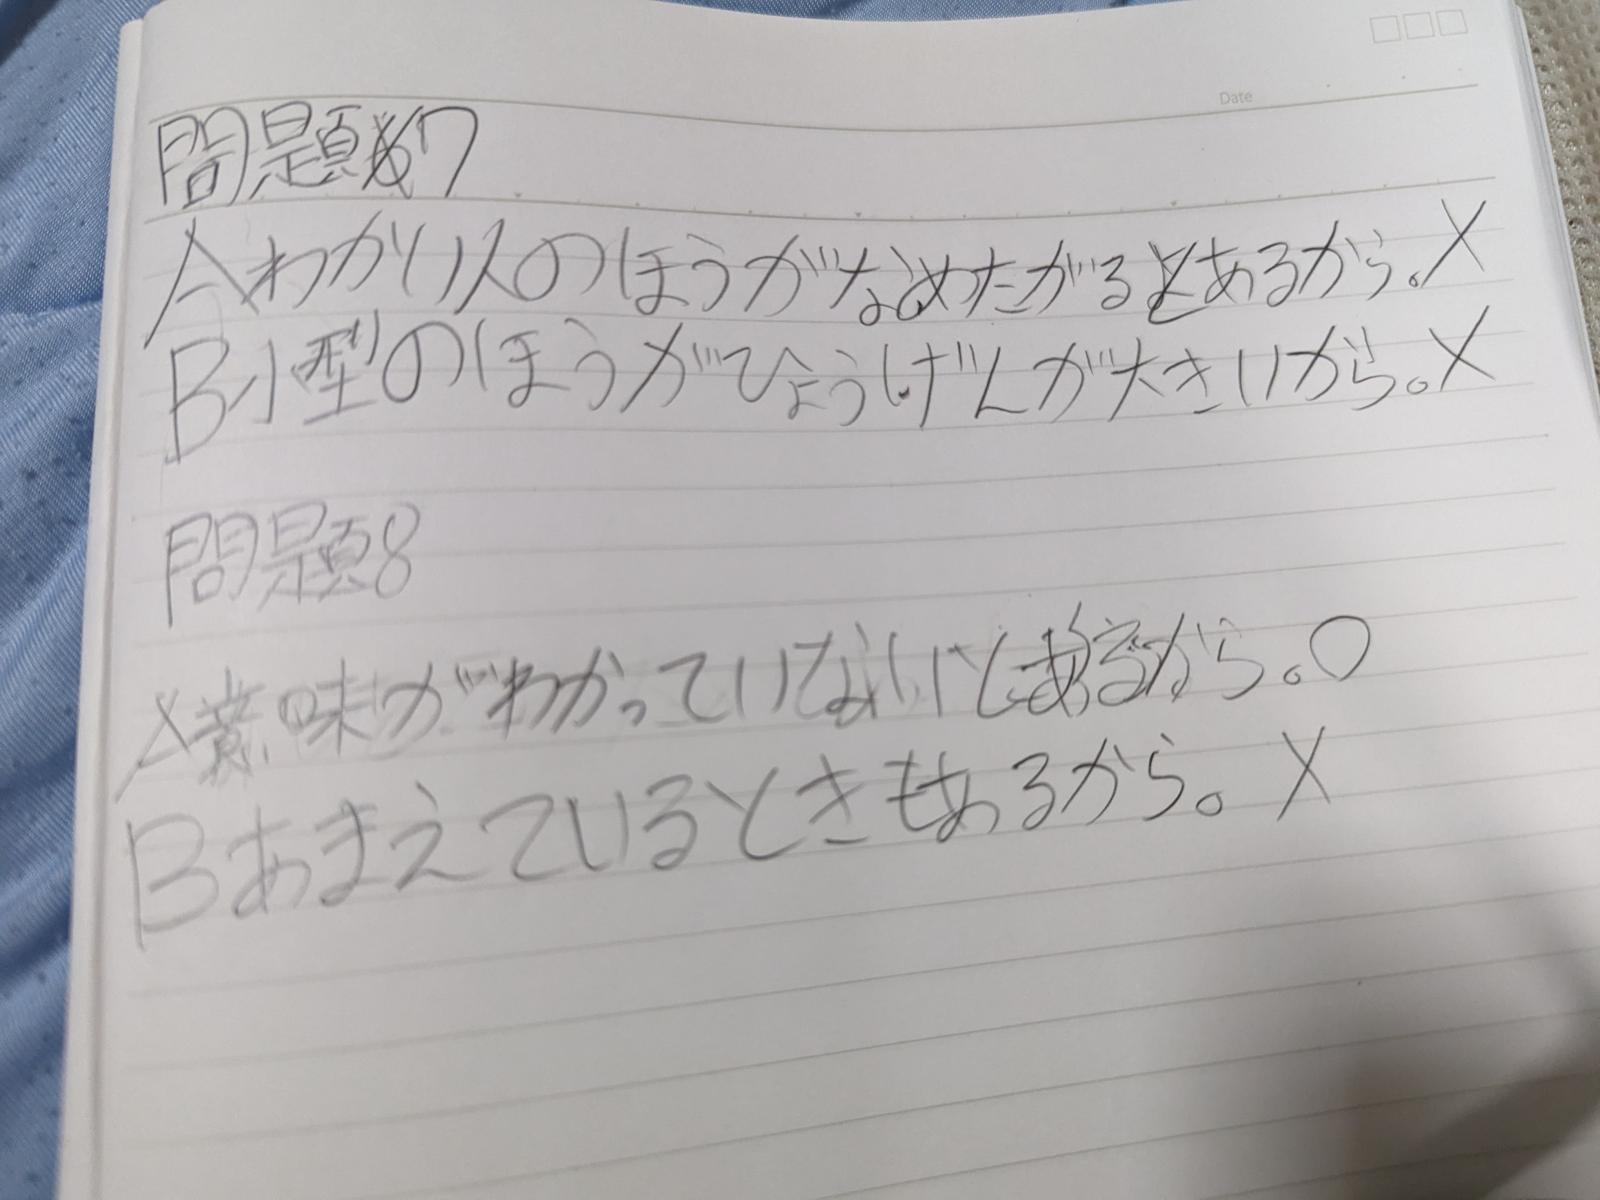 Date
問題7
Aわかい人のほうがなめたがるとあるから。X
B小型のほうがひょうげんが大きいから。X
問題8
A意味がわかっていないとあるから。○
Bあまえているときもあるから。X